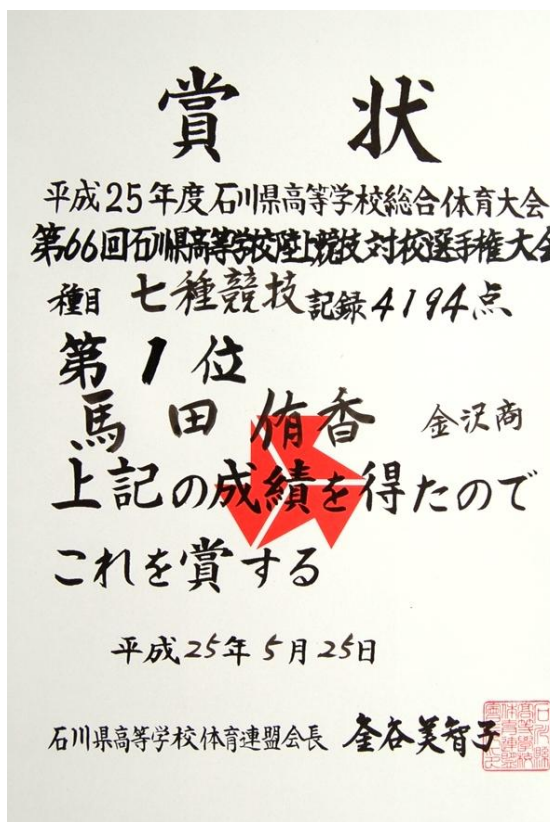 賞状
平成25年度石川県高等学校総合体育大会
第66回石川県高等学校陸上競技対校選手権大会
種目 七種競技 記録4194点
第1位
馬田侑香 金沢商
上記の成績を得たので
これを賞する
平成25年5月25日
石川県高等学校体育連盟会長 釜谷美智子